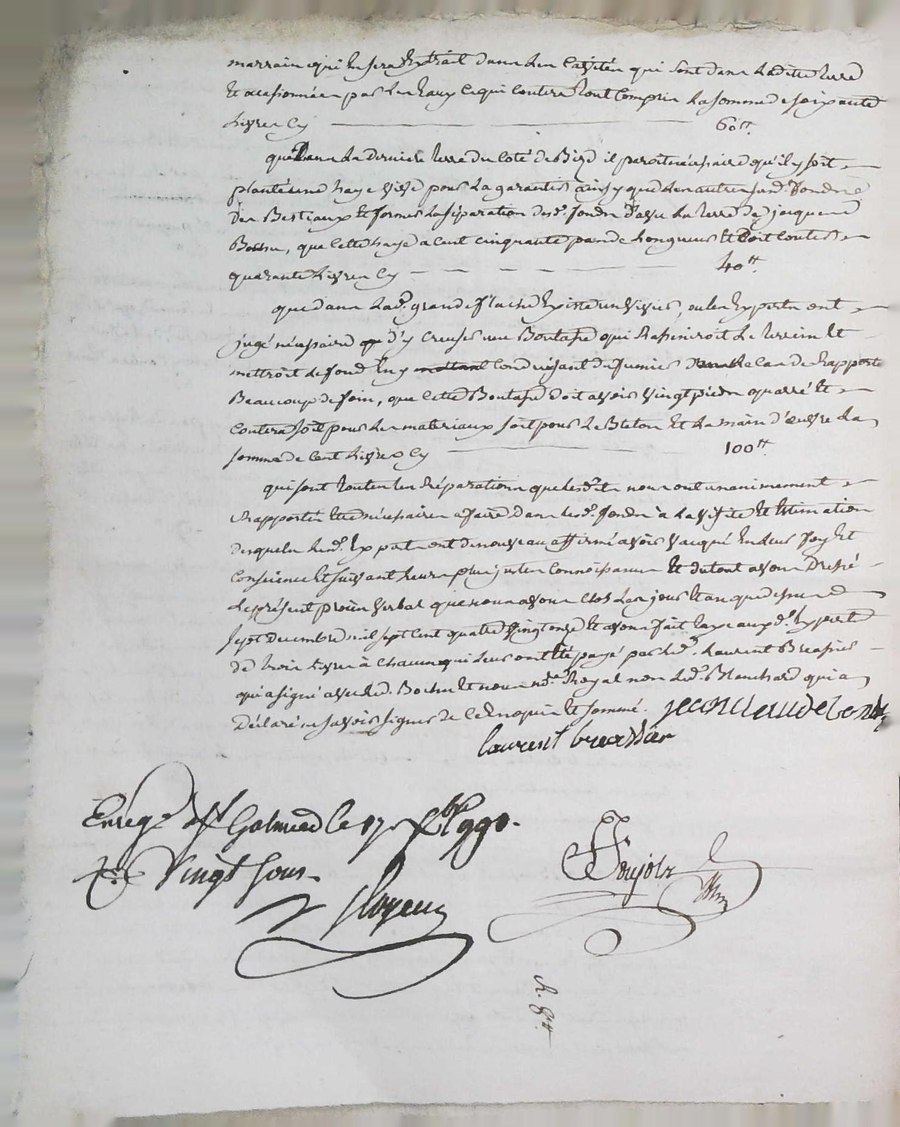 marrain qui en sera Extrait dans les Cavités qui sont dans Ladite terre
Et ocasionnées par Les Eaux Ce qui Coutera tout Compris La somme de soixante
Livres Cy 60tt.
que Dans La derniere terre du Coté de Bizd il paroit nécessaire qu'il y soit
planté une haye vive pour La garantir ainsy que Les autres susd. fonds
Des Bestiaux Et former La séparation desd. fonds d'avec La terre de jacques
Bochu, que Cette haye a Cent cinquante pas de Longueur Et Doit Couter
quarante Livres Cy 40tt.
que dans Lad. grande Existe un vivier, ou les Experts ont
jugé nécessaire d'y Creuser une Boutasse qui Rassiniroit Le terrein Et
mettroit Le fond En y Conduisant du fumier de Rapporter
Beaucoup de foin, que Cette Boutasse doit avoir vingt pieds quarré Et
Coutera soit pour Les materiaux soit pour Le Beton Et La main d'œuvre La
somme de Cent Livres Cy 100tt.
qui sont toutes Les Réparations que Lesdits nous ont unanimement
Rapportés être nécessaires a faire dans Lesd. fonds à La visite Et Estimation
desquels Lesd. Experts ont de nouveau affirmé avoir vacqué En Leur foy Et
Conscience Et suivant Leurs plus justes Connoissances Et du tout avons Dressé
Le présent procès verbal que nous avons Clos Les jour Et an que dessus
sept decembre mil sept cent quatre vingt onze Et avons fait taxe auxd. Experts
de trois Livres à Chacun qui Leur ont été payé par led. Laurent Breassier
qui a signé avec led. Bochu Et nous nre. Royal non Led. Blanchard qui a
Déclaré ne savoir signer de Ce Enquis Et sommé. jean claude
laurent breassier
Enregé. à St. Galmier le 17 Xbre 1791.
Rç. Vingt sous.
Poujols
R. 8tt